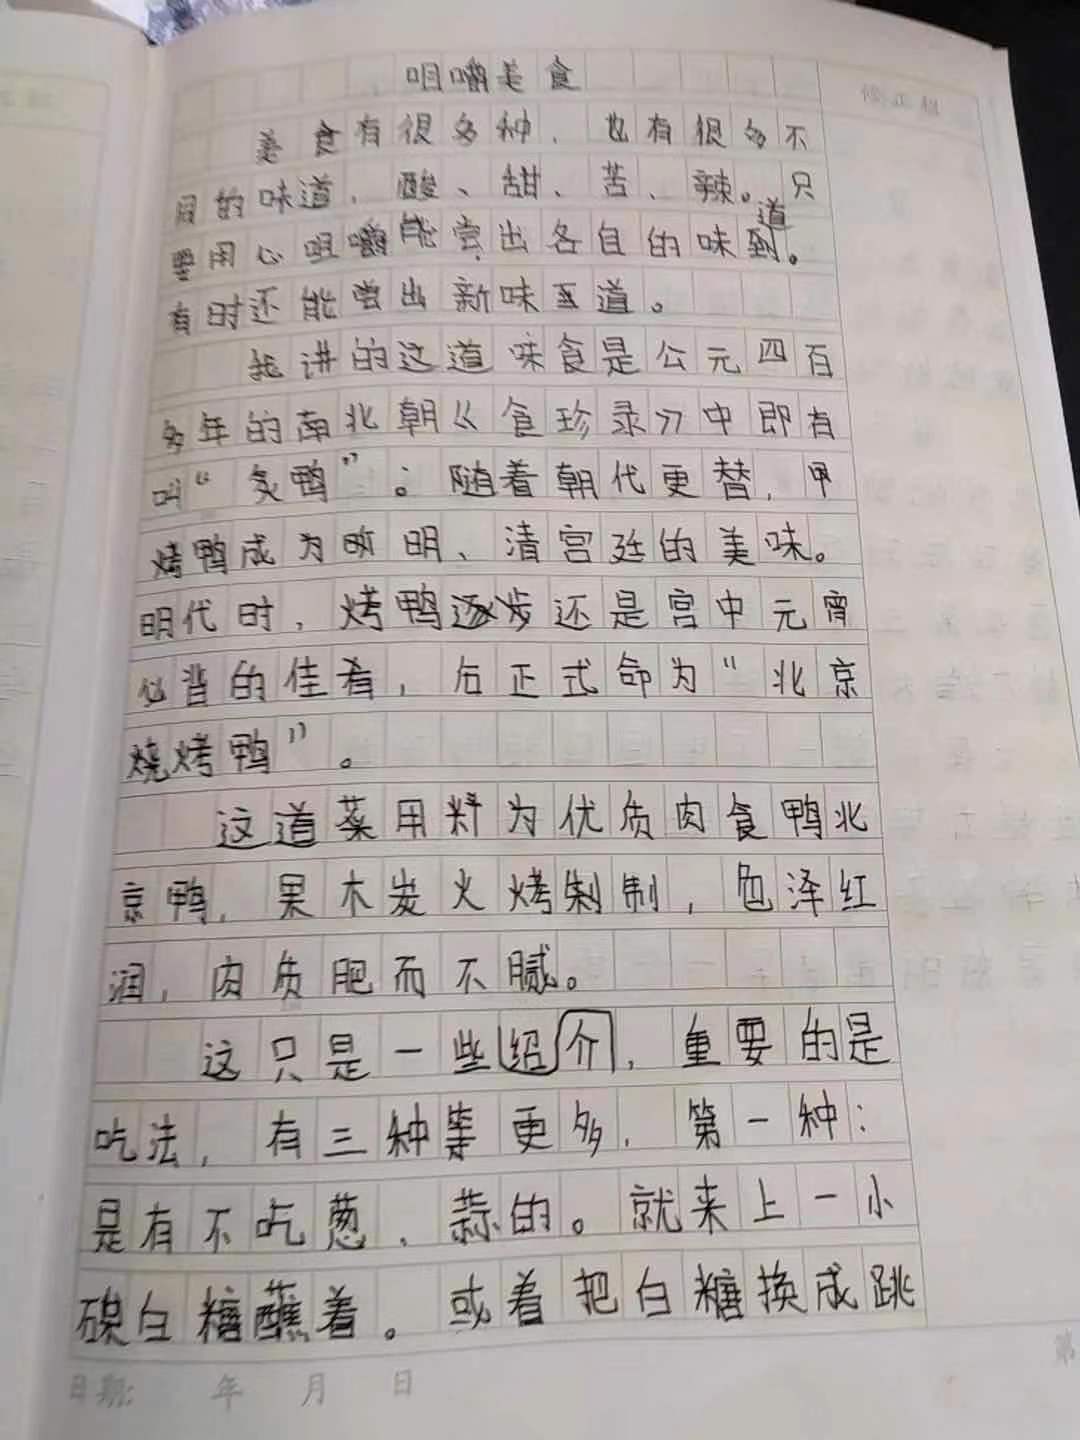 咀嚼美食
美食有很多种，也有很多不
同的味道，酸、甜、苦、辣。只
要用心咀嚼能尝出各自的味道。
有时还能尝出新味道。
我讲的这道味食是公元四百
多年的南北朝《食珍录》中即有
叫“炙鸭”。随着朝代更替，
烤鸭成为明、清宫廷的美味。
明代时，烤鸭还是宫中元宵
必背的佳肴，后正式命为“北京
烧烤鸭”。
这道菜用料为优质肉食鸭北
京鸭，果木炭火烤制，色泽红
润，肉质肥而不腻。
这只是一些绍介，重要的是
吃法，有三种等更多，第一种：
是有不吃葱、蒜的。就来上一小
碟白糖蘸着。或着把白糖换成跳
日期： 年 月 日
第